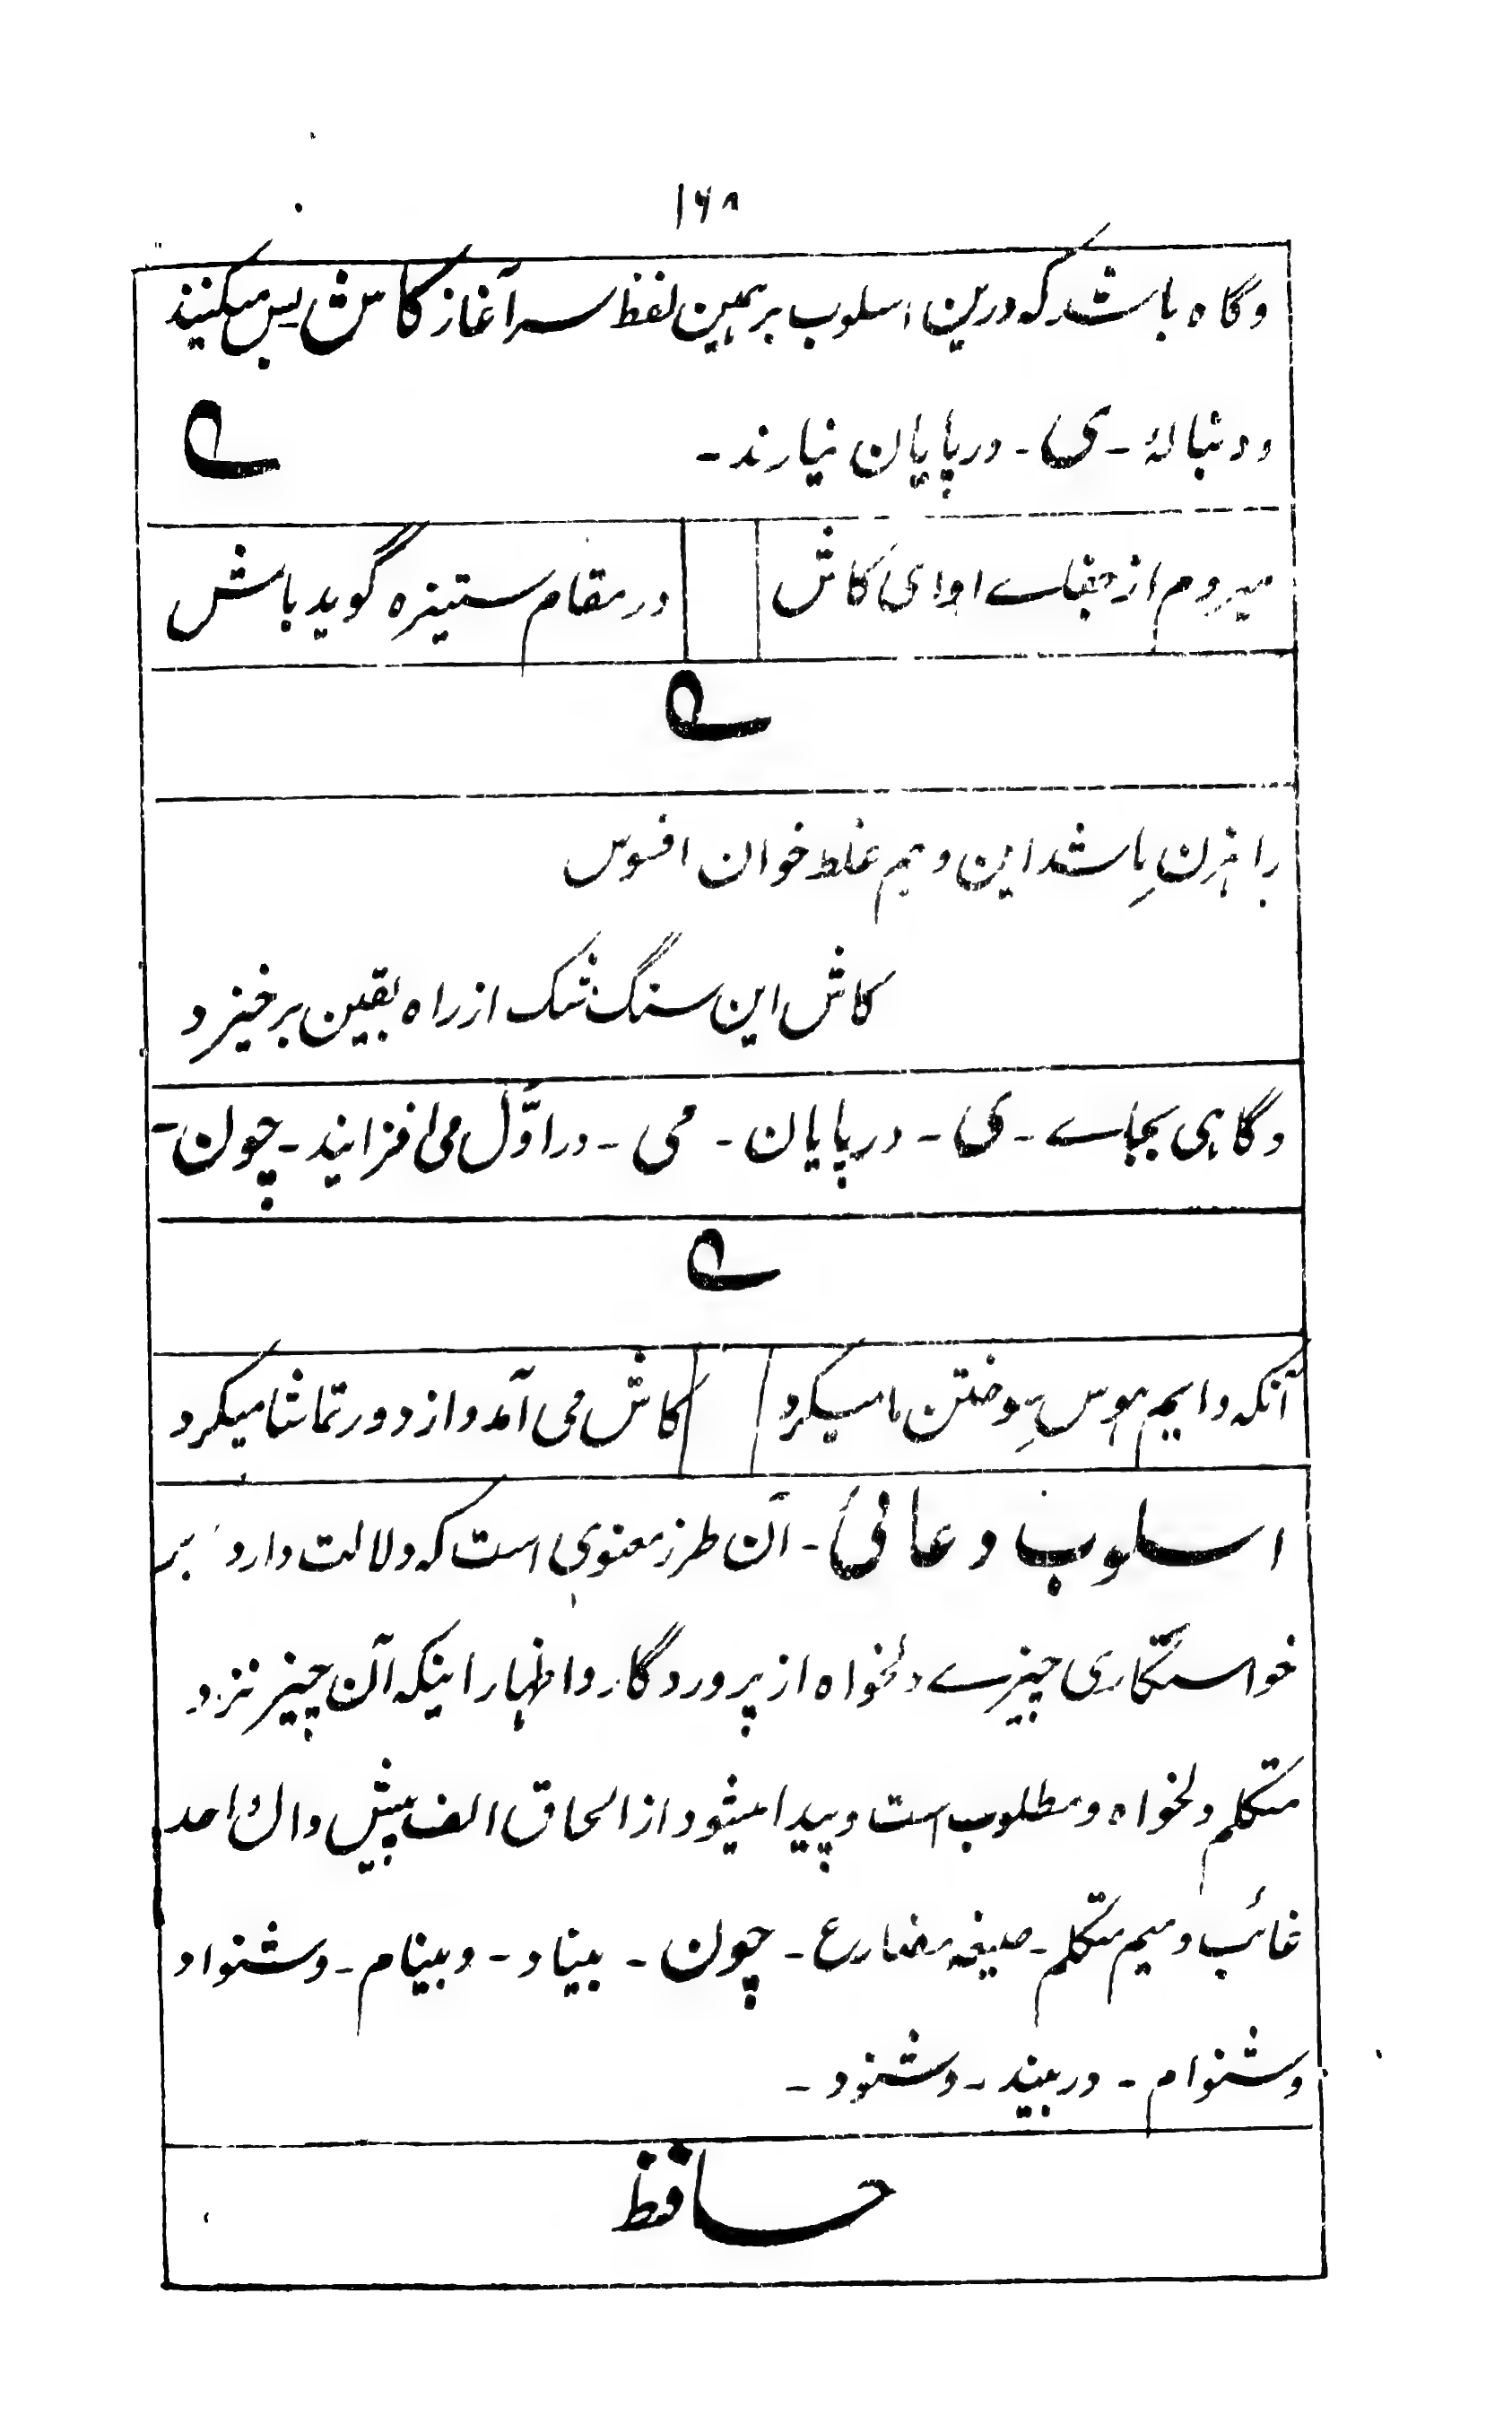 ۱۶۸
وگاه باشد که درین اسلوب بر همین لفظ سرآغاز کاش بس میکنند
و دنبالهٔ - ی - در پایان نیارند -
میروم از جفاے او ای کاش
در مقام ستیزه گوید باش
راهزن باشد این وهم غلط خوان افسوس
کاش این سنگ شک از راه یقین برخیزد
وگاهی بجاے - ی - در پایان - می - در اوّل می افزایند - چون -
آنکه دایم هوس سوختن ما میکرد
کاش می آمد و از دور تماشا میکرد
اسلوب دعائی - آن طرز معنوی است که دلالت دارد بر
خواستگاری چیزے دلخواه از پروردگار و اظهار اینکه آن چیز نزد
متکلم دلخواه و مطلوب است و پیدا میشود از الحاق الف پیش دال واحد
غائب و میم متکلم - صیغه مضارع - چون - بیناد - و بینام - و شنواد
و شنوام - در بیند - و شنود -
حافظ